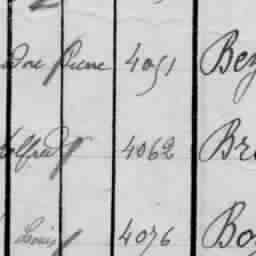 Pierre 4051 Be
Alfred 4062 Br
Louis 4076 Bo